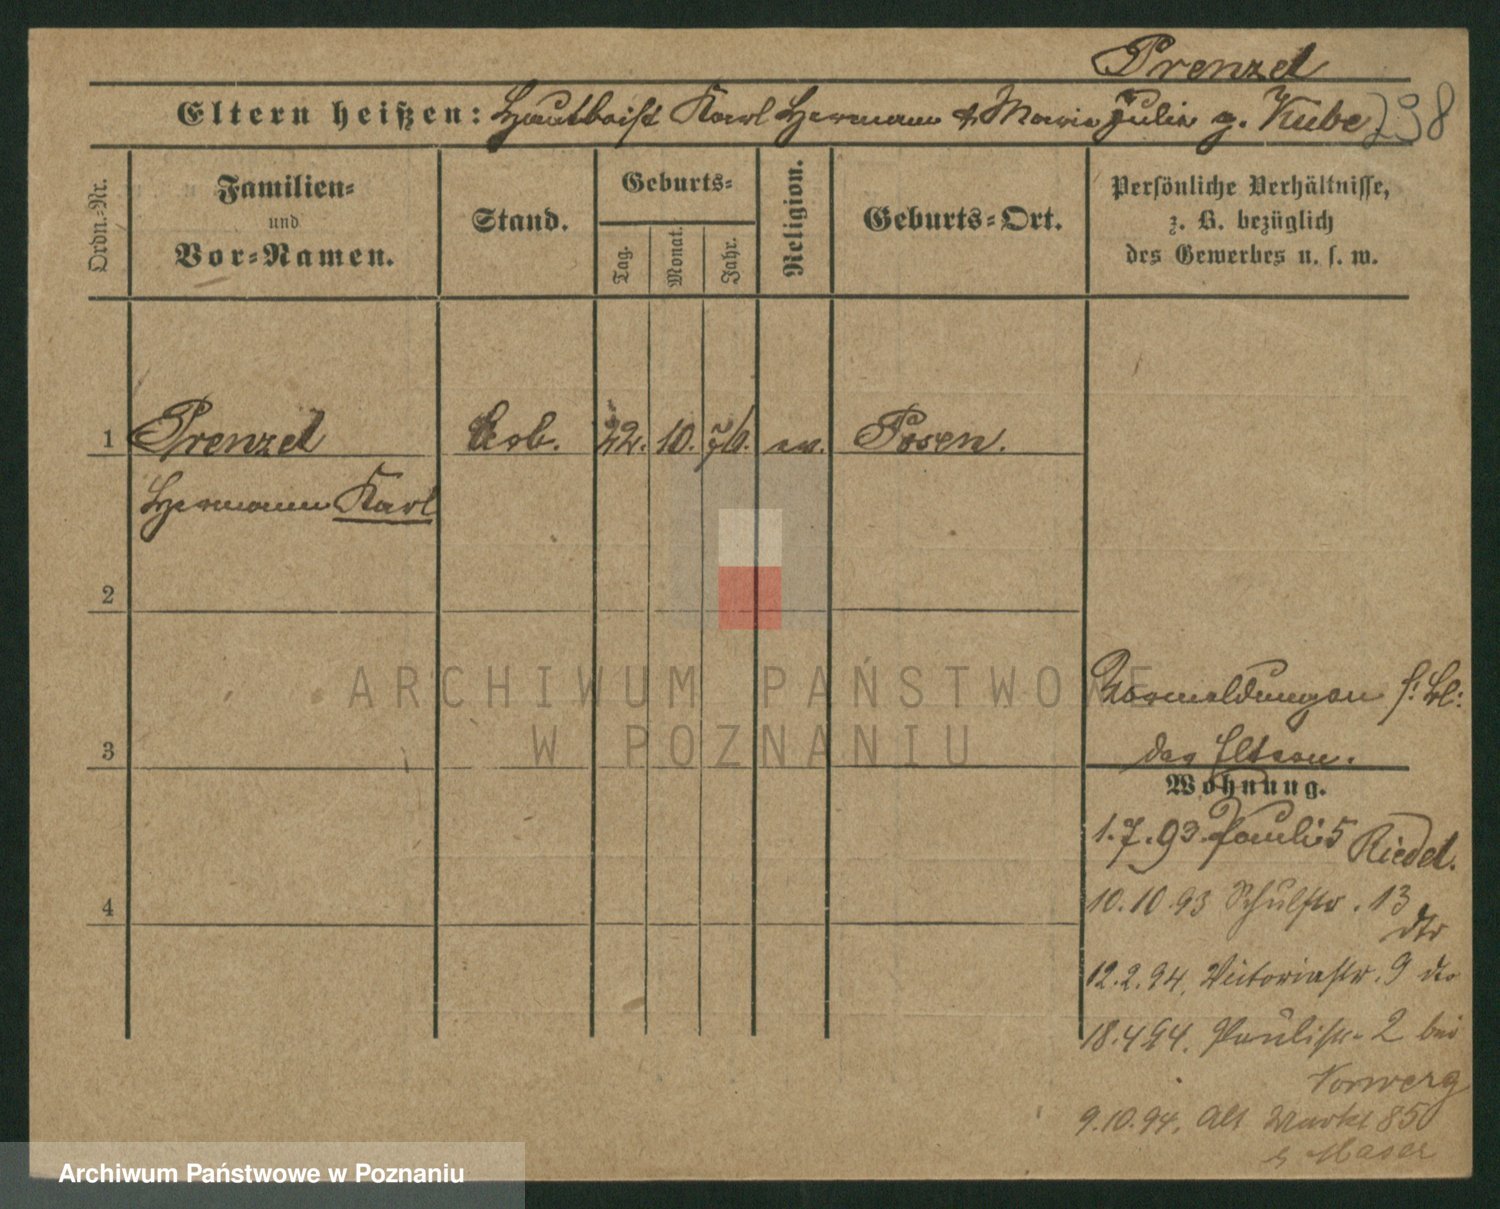 Prenzel
Eltern heißen: Hautboist Karl Hermann & Maria Julie g. Kube
238
Ordn.-Nr.
Familien-
und
Vor-Namen.
Stand.
Geburts-
Tag.
Monat.
Jahr.
Religion.
Geburts-Ort.
Persönliche Verhältnisse,
z. B. bezüglich
des Gewerbes u. s. w.
1 Prenzel 22. 10. ev. Posen.
Hermann Karl
2
3
4
Vormeldungen s. Bl:
der Eltern.
Wohnung.
1.7.93 Pauli 5 Riedel.
10.10.93 Schulstr. 13
dto
12.2.94. Victoriastr. 9 dto
18.4.94. Paulistr. 2 bei
Vorwerg
9.10.94. Alt Markt 85
b Maser
ARCHIWUM PAŃSTWOWE
W POZNANIU
Archiwum Państwowe w Poznaniu